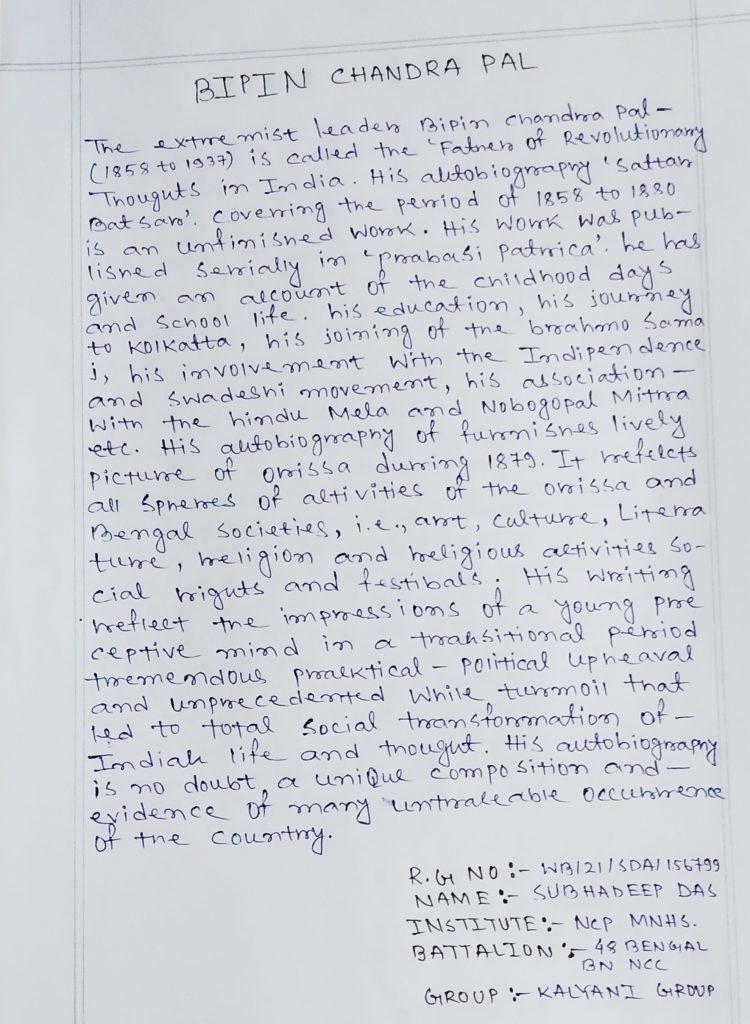 BIPIN CHANDRA PAL
The extremist leader Bipin chandra Pal -
(1858 to 1937) is called the 'Father of Revolutionary
Thoughts in India. His autobiography 'Sattar
Batsar'. Coverring the period of 1858 to 1880
is an unfinished work. His work was pub-
lished serially in 'prabasi Patrica'. he has
given an account of the childhood days
and school life. his education, his journey
to Kolkatta, his joining of the brahmo Sama
j, his involvement with the Indipendence
and swadeshi movement, his association -
with the hindu Mela and Nobogopal Mitra
etc. His autobiography of furnishes lively
picture of orissa during 1879. It refelcts
all spheres of altivities of the orissa and
Bengal societies, i.e., art, culture, Litera
ture, religion and religious activities So-
cial rights and festibals. His writing
reflect the impressions of a young pre
ceptive mind in a transitional period
tremendous praektical - political upheaval
and unprecedented while turmoil that
led to total social transformation of -
Indian life and thought. His autobiography
is no doubt, a unique composition and -
evidence of many untraleable occurrence
of the country.
R.G NO :- WB/21/SDA/156799
NAME :- SUBHADEEP DAS
INSTITUTE :- NCP MNHS.
BATTALION :- 48 BENGAL
BN NCC
GROUP :- KALYANI GROUP